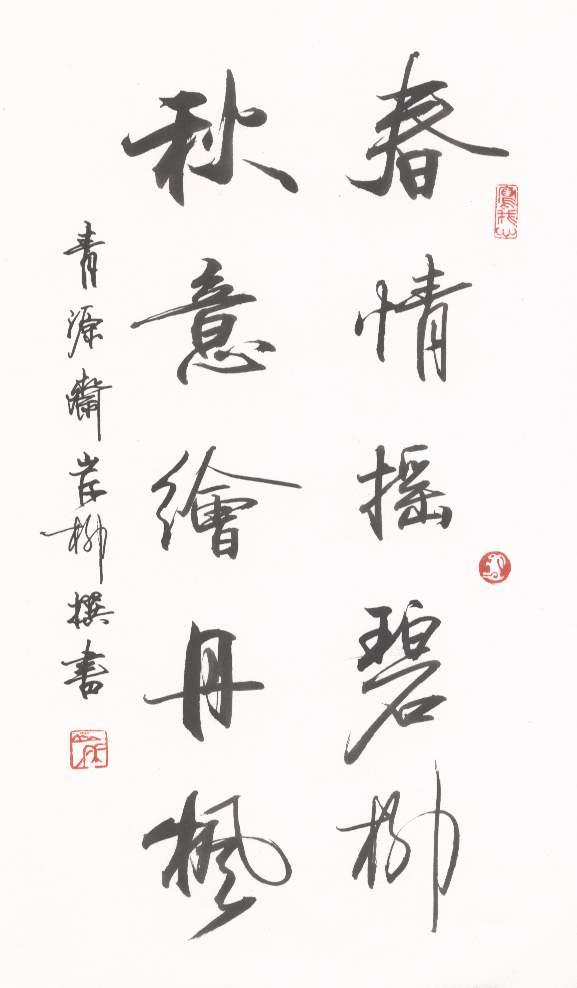 春情摇碧柳
秋意繪丹楓
青源齋岸柳撰書